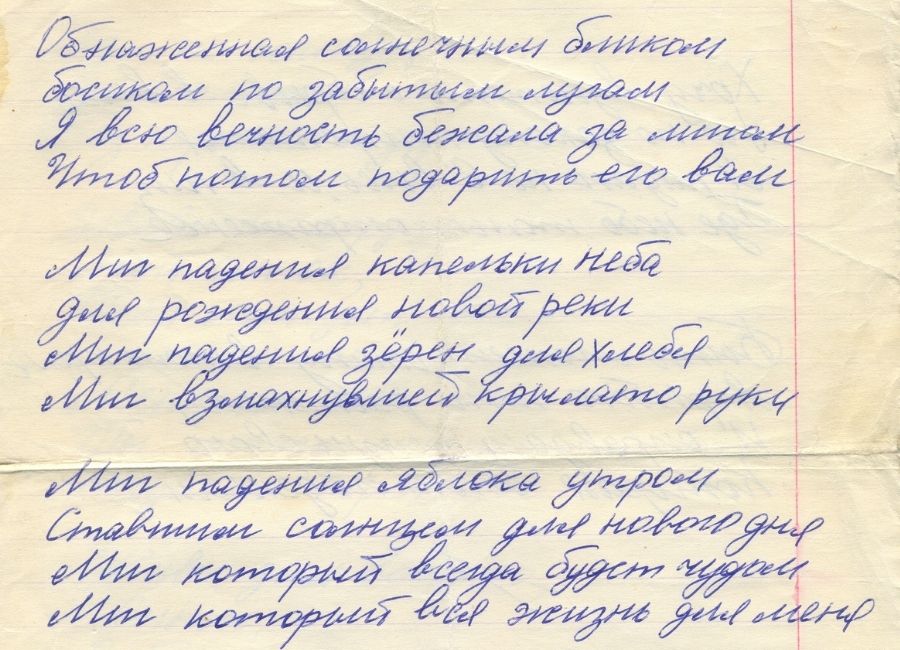 Обнаженная солнечным бликом
босиком по забытым лугам
Я всю вечность бежала за мигом
Чтоб потом подарить его вам
Миг падения капельки неба
для рождения новой реки
Миг падения зёрен для хлеба
Миг взмахнувшей крылато руки
Миг падения яблока утром
Ставшим солнцем для нового дня
Миг который всегда будет чудом
Миг который вся жизнь для меня